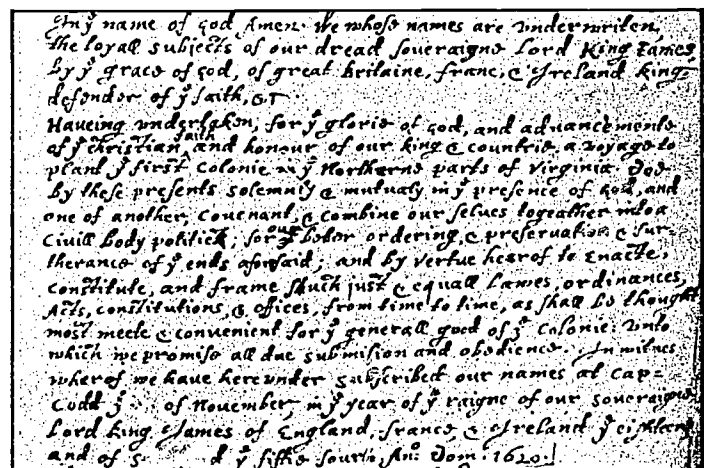 In yͤ name of god Amen. We whose names are vnderwriten,
the loyall subjects of our dread soueraigne Lord King James,
by yͤ grace of god, of great Britaine, franc, & Ireland king,
defender of yͤ faith, &c
Haueing vndertaken, for yͤ glorie of god, and aduancemente
of yͤ christian faith and honour of our king & countrie, a voyage to
plant yͤ first colonie in yͤ Northerne parts of Virginia. Doe
by these presents solemnly & mutualy in yͤ presence of god, and
one of another, couenant, & combine our selues togeather into a
Ciuill body politick; for our beter ordering, & preseruation & fur=
therance of yͤ ends aforesaid; and by vertue hearof to enacte,
constitute, and frame shuch just & equall Lawes, ordinances,
Acts, constitutions, & offices, from time to time, as shall be thought
most meete & conuenient for yͤ generall good of yͤ Colonie: vnto
which we promise all due submision and obedience. In witnes
wherof we have herevnder subscribed our names at Cap=
Codd yͤ of Nouember, in yͤ year of yͤ raigne of our soueraigne
Lord king James of England, france, & Ireland yͤ eighteen
and of yͤ fiftie fourth. Anº: Dom. 1620.